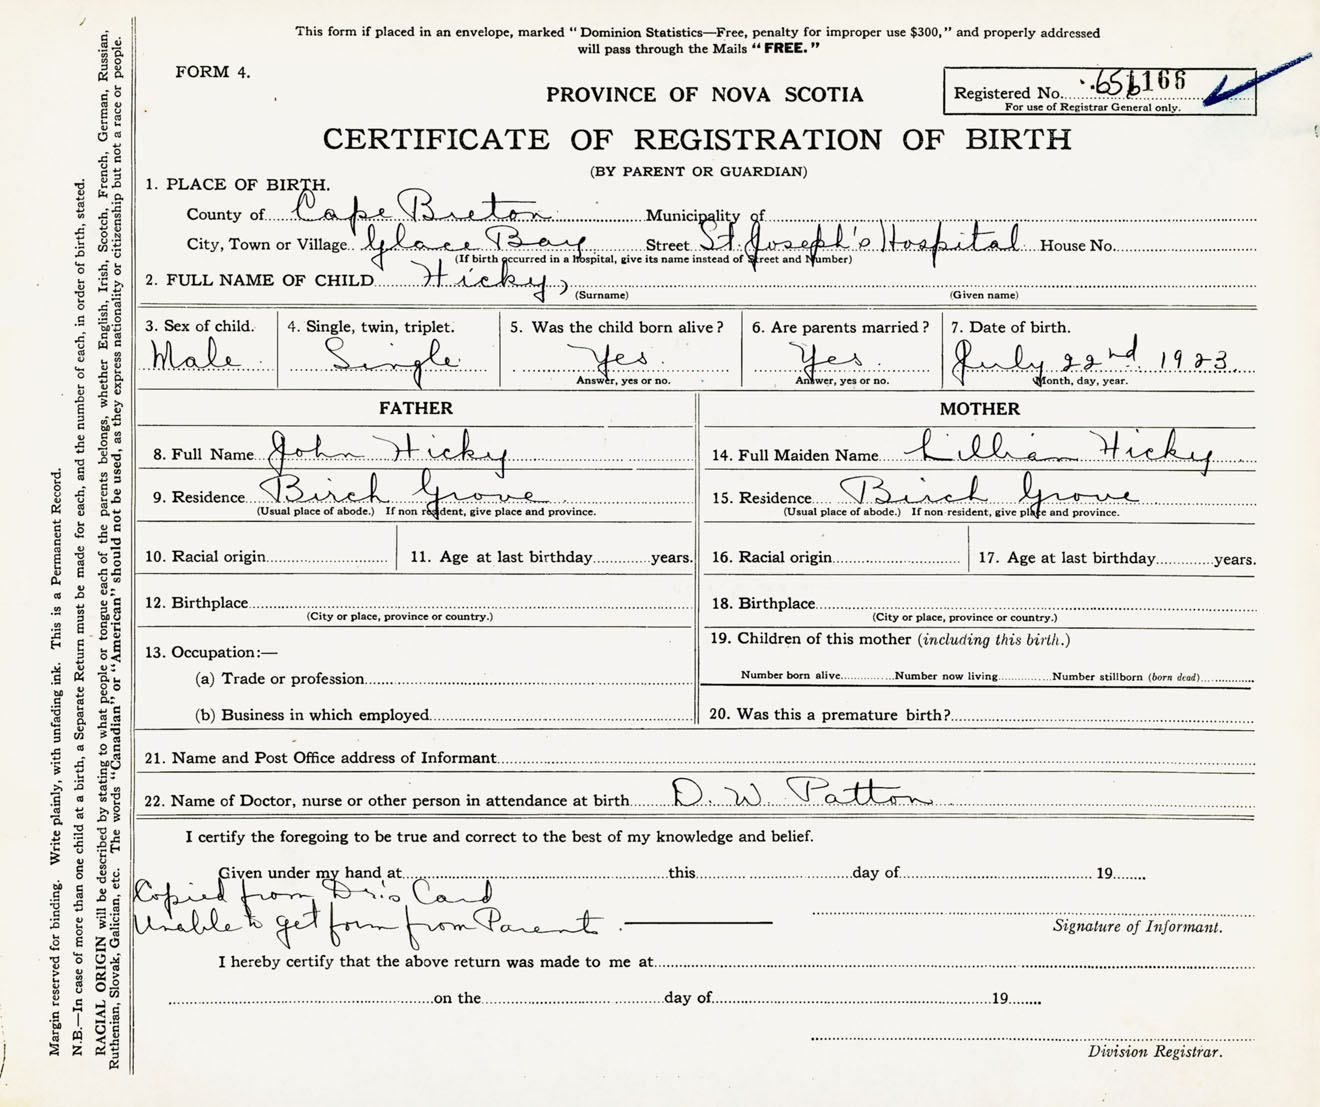 This form if placed in an envelope, marked "Dominion Statistics—Free, penalty for improper use $300," and properly addressed
will pass through the Mails "FREE."
FORM 4.
Registered No. 166
For use of Registrar General only.
PROVINCE OF NOVA SCOTIA
CERTIFICATE OF REGISTRATION OF BIRTH
(BY PARENT OR GUARDIAN)
1. PLACE OF BIRTH.
County of Cape Breton Municipality of
City, Town or Village Glace Bay Street St. Joseph's Hospital House No.
(If birth occurred in a hospital, give its name instead of Street and Number)
2. FULL NAME OF CHILD Hicky,
(Surname) (Given name)
3. Sex of child. 4. Single, twin, triplet. 5. Was the child born alive? 6. Are parents married? 7. Date of birth.
Male Single Yes. Yes. July 22nd. 1923.
Answer, yes or no. Answer, yes or no. Month, day, year.
FATHER MOTHER
8. Full Name John Hicky 14. Full Maiden Name Lillian Hicky
9. Residence Birch Grove 15. Residence Birch Grove
(Usual place of abode.) If non resident, give place and province. (Usual place of abode.) If non-resident, give place and province.
10. Racial origin 11. Age at last birthday years. 16. Racial origin 17. Age at last birthday years.
12. Birthplace 18. Birthplace
(City or place, province or country.) (City or place, province or country.)
19. Children of this mother (including this birth.)
13. Occupation:—
(a) Trade or profession Number born alive Number now living Number stillborn (born dead)
(b) Business in which employed 20. Was this a premature birth?
21. Name and Post Office address of Informant
22. Name of Doctor, nurse or other person in attendance at birth D. W. Patton
I certify the foregoing to be true and correct to the best of my knowledge and belief.
Given under my hand at this day of 19
Copied from Dr.'s Card
Unable to get form from Parent.
Signature of Informant.
I hereby certify that the above return was made to me at
on the day of 19
Division Registrar.
Margin reserved for binding. Write plainly, with unfading ink. This is a Permanent Record.
N.B.—In case of more than one child at a birth, a Separate Return must be made for each, and the number of each, in order of birth, stated.
RACIAL ORIGIN will be described by stating to what people or tongue each of the parents belongs, whether English, Irish, Scotch, French, German, Russian,
Ruthenian, Slovak, Galician, etc. The words "Canadian" or "American" should not be used, as they express nationality or citizenship but not a race or people.